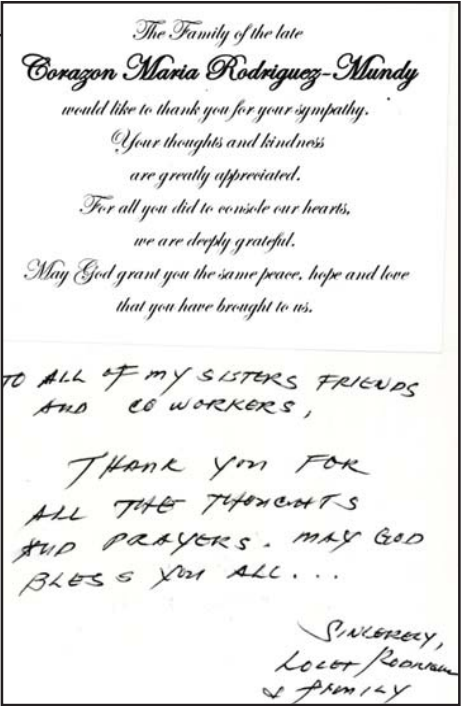 The Family of the late
Corazon Maria Rodriguez-Mundy
would like to thank you for your sympathy.
Your thoughts and kindness
are greatly appreciated.
For all you did to console our hearts,
we are deeply grateful.
May God grant you the same peace, hope and love
that you have brought to us.
TO ALL OF MY SISTERS FRIENDS
AND CO WORKERS,
THANK YOU FOR
ALL THE THOUGHTS
AND PRAYERS. MAY GOD
BLESS YOU ALL...
SINCERELY,
& FAMILY